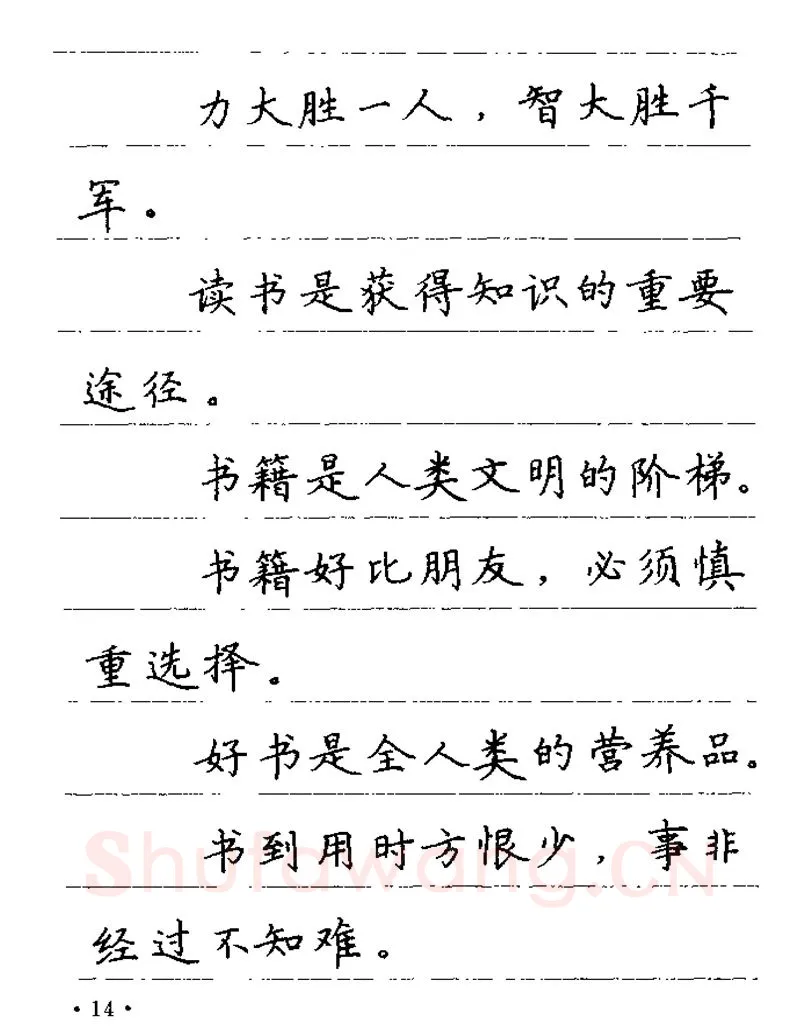 力大胜一人，智大胜千
军。
读书是获得知识的重要
途径。
书籍是人类文明的阶梯。
书籍好比朋友，必须慎
重选择。
好书是全人类的营养品。
书到用时方恨少，事非
经过不知难。
Shufawang.CN
·14·